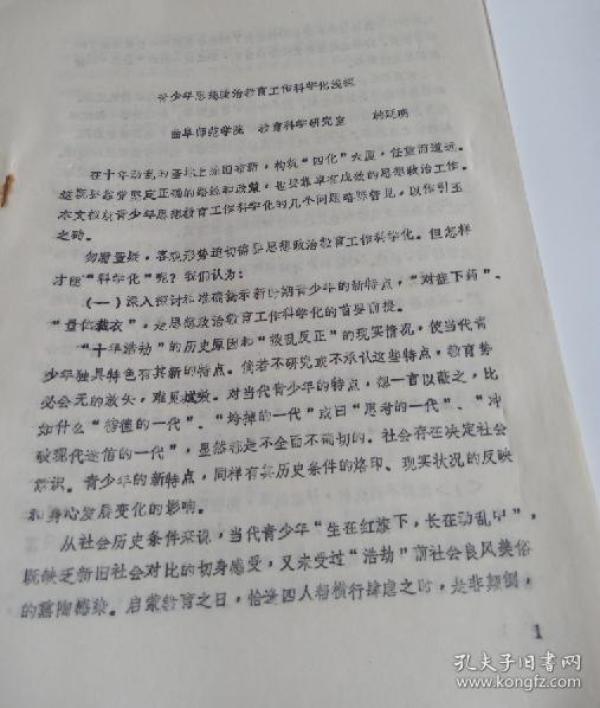 青少年思想政治教育工作科学化浅探
曲阜师范学院 教育科学研究室
在十年动乱的基地上治国者新,构筑"四化"大厦,任重而道远。
这既要靠党坚定正确的路线和政策,也要靠卓有成效的思想政治工作。
本文拟就青少年思想教育工作科学化的几个问题略陈管见,以作引玉
之砖。
勿庸置疑,客观形势迫切需要思想政治教育工作科学化。但怎样
才能"科学化"呢?我们认为:
(一)深入探讨和准确揭示新时期青少年的新特点,"对症下药"、
"量体裁衣",是思想政治教育工作科学化的首要前提。
"十年浩劫"的历史原因和"拨乱反正"的现实情况,使当代青
少年独具特色有其新的特点。倘若不研究或不承认这些特点,教育势
必会无的放矢,难见成效。对当代青少年的特点,想一言以蔽之,比
如什么"彷徨的一代"、"垮掉的一代"或曰"思考的一代"、"冲
破现代迷信的一代",显然都是不全面不确切的。社会存在决定社会
意识。青少年的新特点,同样有其历史条件的烙印、现实状况的反映
和身心发展变化的影响。
从社会历史条件来说,当代青少年"生在红旗下,长在动乱中",
既缺乏新旧社会对比的切身感受,又未受过"浩劫"前社会良风美俗
的熏陶感染。启蒙教育之日,恰逢四人帮横行肆虐之时,是非颠倒,
1
孔夫子旧书网
www.kongfz.com